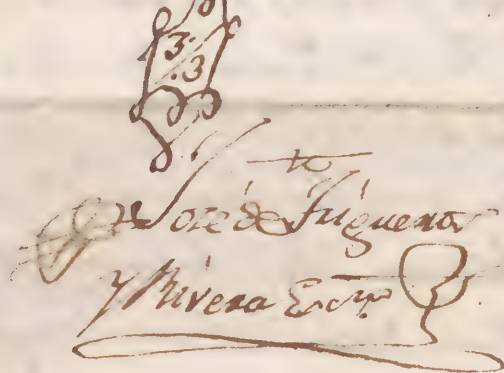 3
3
José de Figueroa
y Rivera Escrº